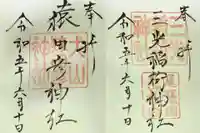 奉拝
三光稲荷神社
令和五年六月十日
奉拝
猿田彦神社
令和五年六月十日
犬山
神社